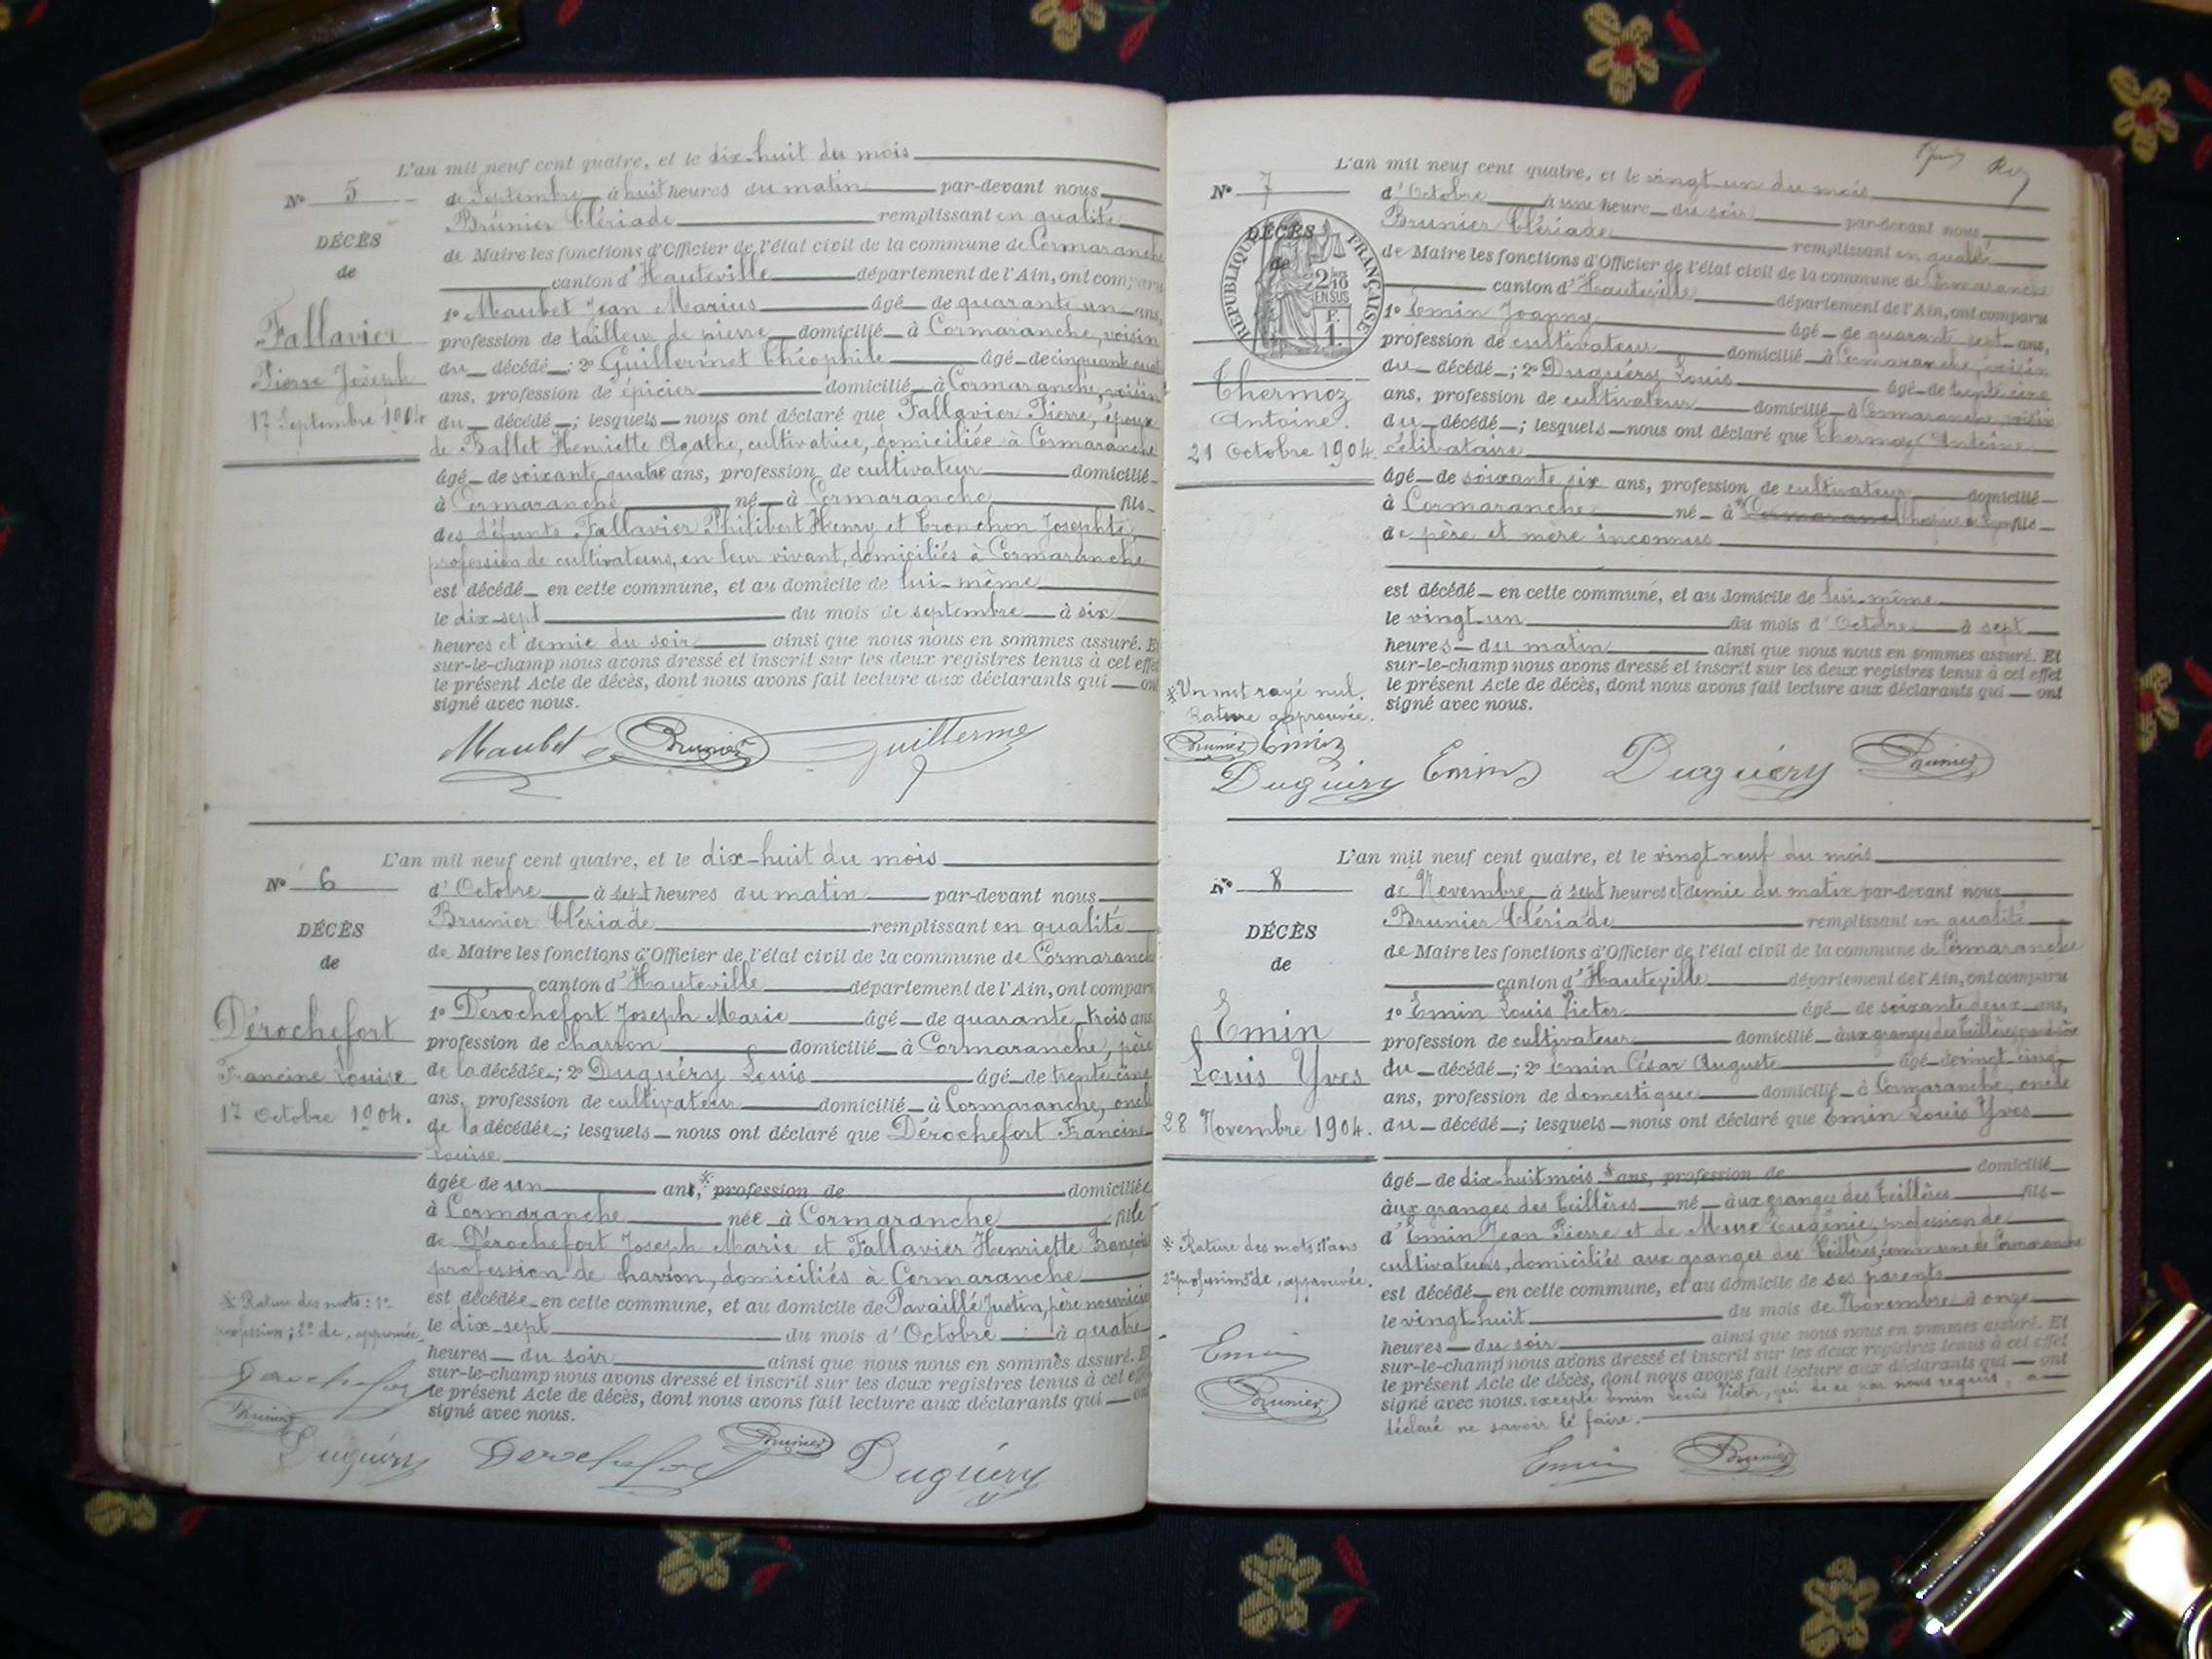 L'an mil neuf cent quatre, et le dix-huit du mois
N° 5
de Septembre à huit heures du matin par-devant nous,
Brunier Clériade remplissant en qualité
DÉCÈS
de Maire les fonctions d'Officier de l'état civil de la commune de Cormaranche
de
canton d'Hauteville département de l'Ain, ont comparu
1° Maubet Jean Marius âgé de quarante un ans,
Fallavier
profession de tailleur de pierre domicilié à Cormaranche, voisin
du décédé ; 2° Guillermet Théophile âgé de cinquante
Pierre Joseph
ans, profession de épicier domicilié à Cormaranche, voisin
17 Septembre 1904
du décédé ; lesquels nous ont déclaré que Fallavier Pierre, époux
de Ballet Henriette Agathe, cultivatrice, domiciliée à Cormaranche
âgé de soixante quatre ans, profession de cultivateur domicilié
à Cormaranche né à Cormaranche fils
des défunts Fallavier Philibert Henry et Tronchon Josephte,
profession de cultivateurs, en leur vivant, domiciliés à Cormaranche
est décédé en cette commune, et au domicile de lui-même
le dix-sept du mois de septembre à six
heures et demie du soir ainsi que nous nous en sommes assuré. Et
sur-le-champ nous avons dressé et inscrit sur les deux registres tenus à cet effet
le présent Acte de décès, dont nous avons fait lecture aux déclarants qui ont
signé avec nous.
Maubet Brunier Guillerme
L'an mil neuf cent quatre, et le dix-huit du mois
N° 6
d'Octobre à sept heures du matin par-devant nous
Brunier Clériade remplissant en qualité
DÉCÈS
de Maire les fonctions d'Officier de l'état civil de la commune de Cormaranche
de
canton d'Hauteville département de l'Ain, ont comparu
Dérochefort
1° Dérochefort Joseph Marie âgé de quarante trois ans
profession de charron domicilié à Cormaranche, père
Francine Louise
de la décédée ; 2° Duguéry Louis âgé de trente cinq
17 Octobre 1904.
ans, profession de cultivateur domicilié à Cormaranche, oncle
de la décédée ; lesquels nous ont déclaré que Dérochefort Francine
Louise
âgée de un an, * profession de domiciliée
à Cormaranche née à Cormaranche fille
de Dérochefort Joseph Marie et Fallavier Henriette Françoise
profession de charron, domiciliés à Cormaranche
* Rature des mots : 1°
profession ; 2° de, approuvée
est décédée en cette commune, et au domicile de Pavaillé Justin, père nourricier
le dix-sept du mois d'Octobre à quatre
heures du soir ainsi que nous nous en sommes assuré. Et
sur-le-champ nous avons dressé et inscrit sur les deux registres tenus à cet effet
le présent Acte de décès, dont nous avons fait lecture aux déclarants qui ont
signé avec nous.
Derochefort
Brunier
Duguéry Derochefort Brunier Duguéry
L'an mil neuf cent quatre, et le vingt-un du mois
N° 7
d'Octobre à une heure du soir par-devant nous
Brunier Clériade remplissant en qualité
DÉCÈS
de
RÉPUBLIQUE FRANÇAISE
2/10 EN SUS
F. 1.
de Maire les fonctions d'Officier de l'état civil de la commune de Cormaranche
canton d'Hauteville département de l'Ain, ont comparu
1° Emin Joanny âgé de quarante sept ans,
profession de cultivateur domicilié à Cormaranche, voisin
du décédé ; 2° Duguéry Louis âgé de trente cinq
Thermoz
ans, profession de cultivateur domicilié à Cormaranche, voisin
Antoine.
du décédé ; lesquels nous ont déclaré que Thermoz Antoine
21 Octobre 1904.
célibataire
âgé de soixante six ans, profession de cultivateur domicilié
à Cormaranche né à * Cormaranche fils
de père et mère inconnus
est décédé en cette commune, et au domicile de lui-même
le vingt-un du mois d'Octobre à sept
heures du matin ainsi que nous nous en sommes assuré. Et
sur-le-champ nous avons dressé et inscrit sur les deux registres tenus à cet effet
le présent Acte de décès, dont nous avons fait lecture aux déclarants qui ont
signé avec nous.
* Un mot rayé nul.
Rature approuvée.
Brunier Emin
Duguéry Emin Duguéry Brunier
L'an mil neuf cent quatre, et le vingt-neuf du mois
N° 8
de Novembre à sept heures et demie du matin par-devant nous
Brunier Clériade remplissant en qualité
DÉCÈS
de Maire les fonctions d'Officier de l'état civil de la commune de Cormaranche
de
canton d'Hauteville département de l'Ain, ont comparu
1° Emin Louis Victor âgé de soixante deux ans,
Emin
profession de cultivateur domicilié aux granges des Teillères, grand-père
du décédé ; 2° Emin César Auguste âgé de vingt cinq
Louis Yves
ans, profession de domestique domicilié à Cormaranche, oncle
28 Novembre 1904.
du décédé ; lesquels nous ont déclaré que Emin Louis Yves
âgé de dix-huit mois * ans, profession de domicilié
aux granges des Teillères né aux granges des Teillères fils
d'Emin Jean Pierre et de Mure Eugénie, profession de
* Rature des mots : 1° ans
2° profession 3° de, approuvée.
cultivateurs, domiciliés aux granges des Teillères, commune de Cormaranche
est décédé en cette commune, et au domicile de ses parents
le vingt-huit du mois de Novembre à onze
heures du soir ainsi que nous nous en sommes assuré. Et
sur-le-champ nous avons dressé et inscrit sur les deux registres tenus à cet effet
le présent Acte de décès, dont nous avons fait lecture aux déclarants qui ont
signé avec nous. excepté Emin Louis Victor, qui de ce par nous requis, a
déclaré ne savoir le faire.
Emin
Brunier
Emin Brunier